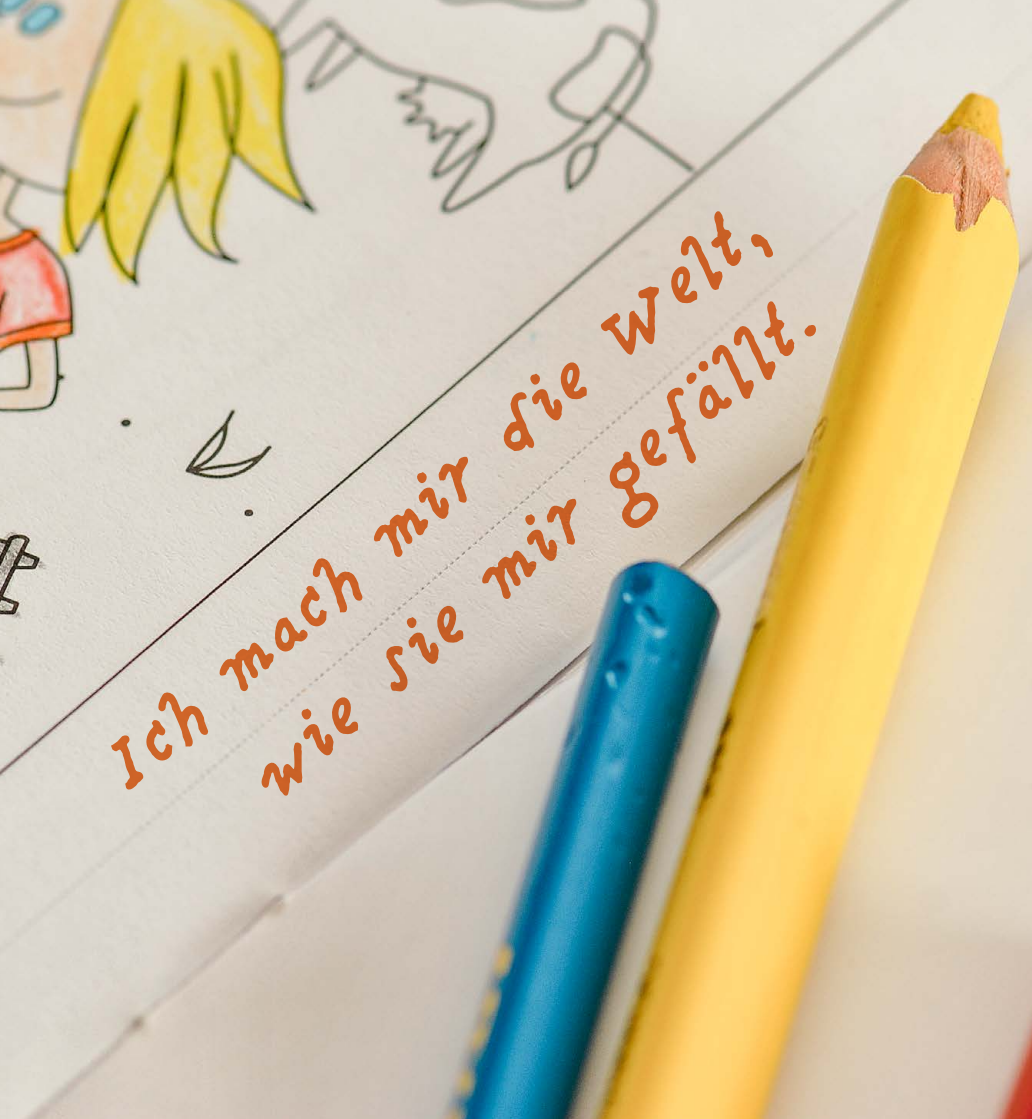 Ich mach mir die Welt,
wie sie mir gefällt.